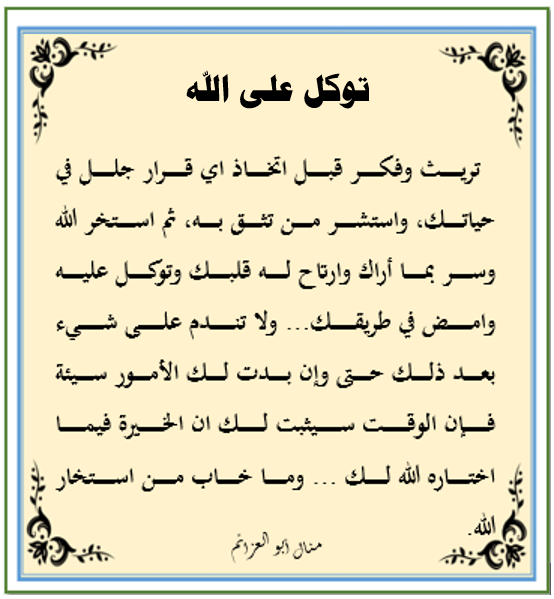 توكل على الله
تريث وفكر قبل اتخاذ اي قرار جلل في
حياتك، واستشر من تثق به، ثم استخر الله
وسر بما أراك وارتاح له قلبك وتوكل عليه
وامض في طريقك... ولا تندم على شيء
بعد ذلك حتى وإن بدت لك الأمور سيئة
فإن الوقت سيثبت لك ان الخيرة فيما
اختاره الله لك ... وما خاب من استخار
الله.
منال أبو العزائم